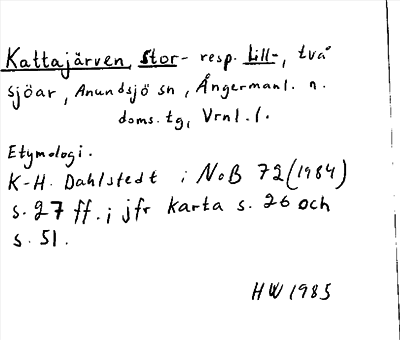 Kattajärven, Stor- resp. Lill-, två
sjöar, Anundsjö sn, Ångermanl. n.
doms.tg, Vrnl.l.
Etymologi.
K-H. Dahlstedt i NoB 72 (1984)
s. 27 ff.; jfr karta s. 26 och
s. 51.
HW 1985